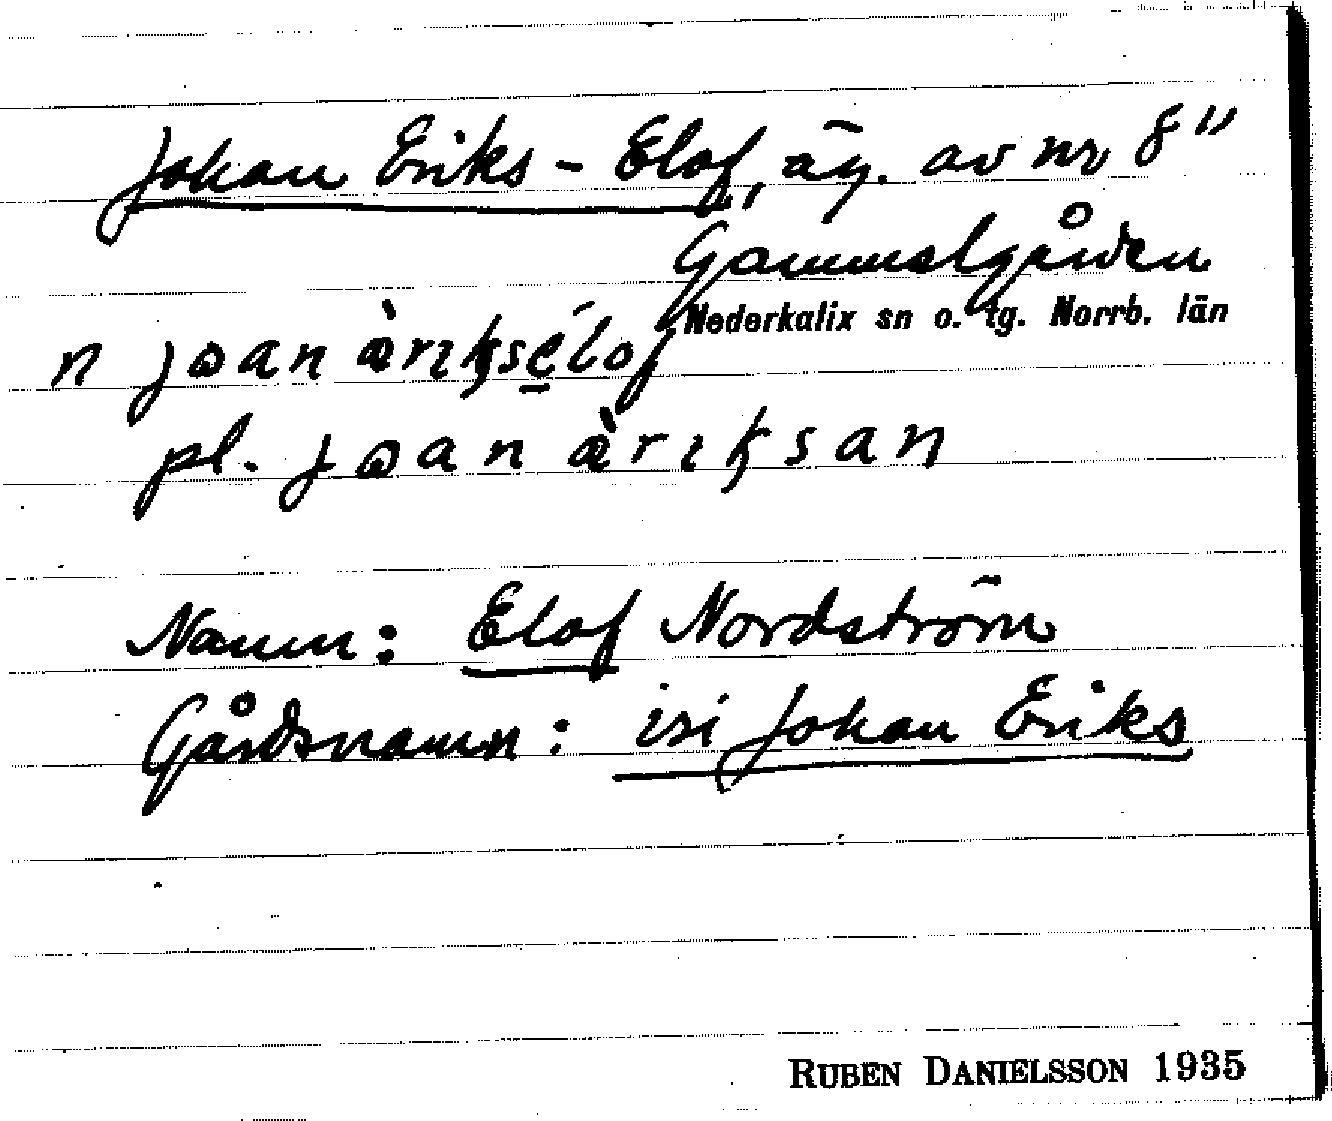 Johan Eriks-Elof, äg. av nr 8"
Gammelgården
Nederkalix sn o. tg. Norrb. län
n joan æ̀rıksélof
pl. joan æ̀rıksan
Namn: Elof Nordström
Gårdsnamn: isi Johan Eriks
RUBEN DANIELSSON 1935